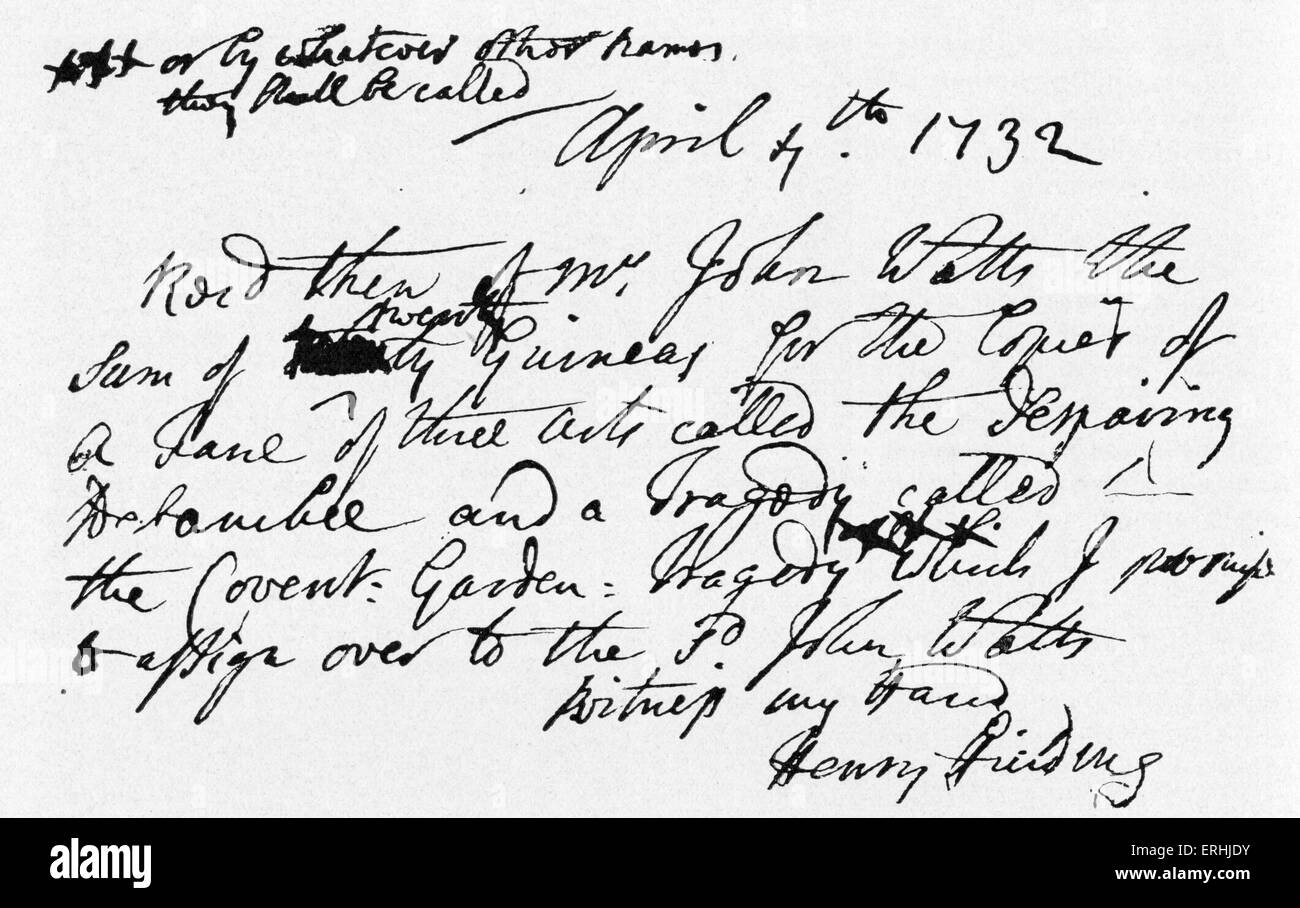 or by whatever other names
they shall be called
April 4th. 1732
Recd then of Mr. John Watts the
twenty
Sum of Guineas for the Copies of
a Farce of three acts called the Despairing
Debauchee and a Tragedy called
the Covent=Garden=Tragedy which I promise
to assign over to the Sd. John Watts
Witness my Hand
Henry Fielding
alamy
alamy stock photo
ERHJDY
www.alamy.com